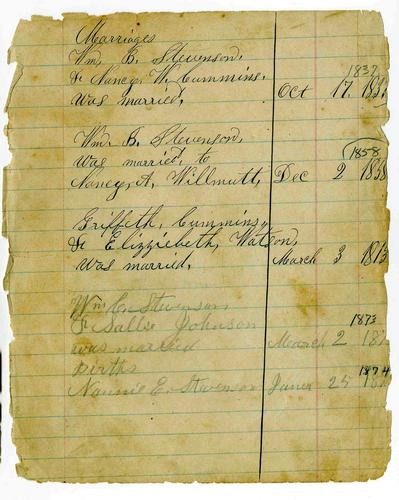 Marriages
Wm. B. Stevenson,
& Nancy W. Cummins. 1837
was married, Oct 17 183
Wm. B. Stevenson,
was married, to 1858
Nancy A, Willmutt, Dec 2 1858
Griffeth, Cummins,
& Elizziebeth, Watson,
was married. March 3 1813
Wm C Stevenson
& Sallie Johnson 1873
was married March 2 187
Births 1874
Nannie E. Stevenson Janer 25 187